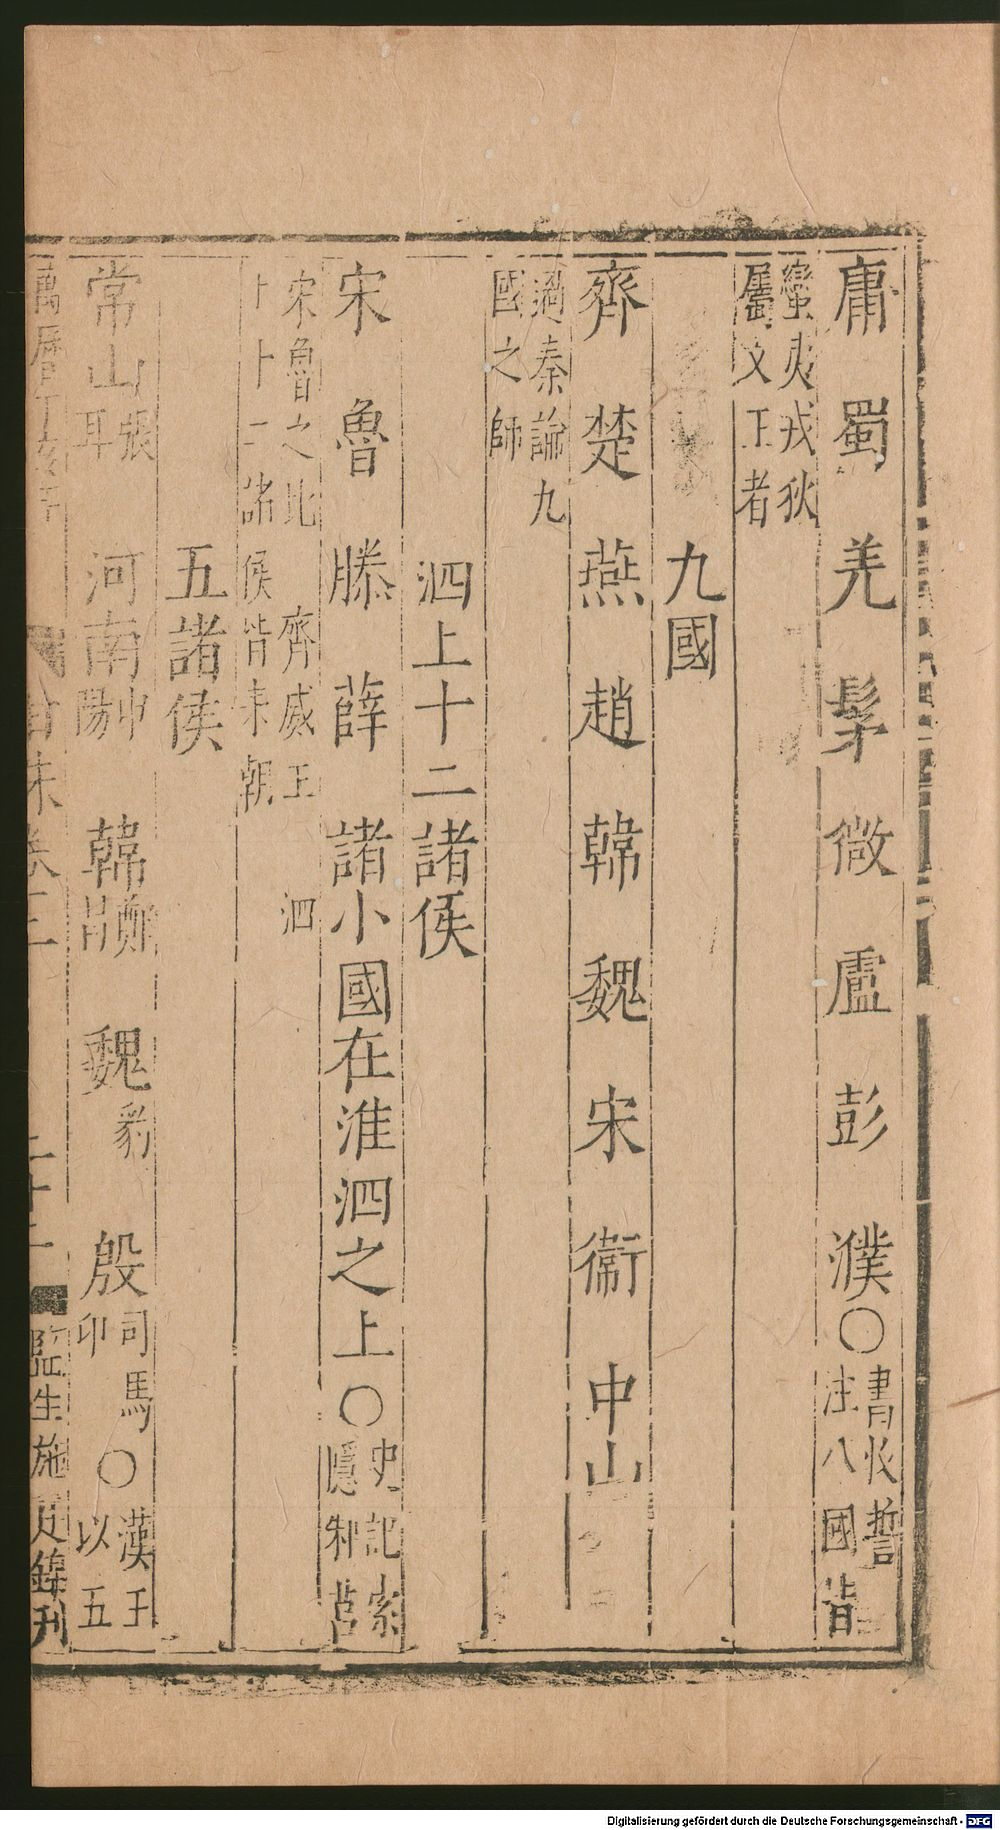 庸 蜀 羌 髳 微 盧 彭 濮〇書牧誓
注八國皆
蠻夷戎狄
屬文王者
九國
齊 楚 燕 趙 韓 魏 宋 衞 中山
過秦論九
國之師
泗上十二諸侯
宋 魯 滕 薛 諸小國在淮泗之上〇史記索
隱邾莒
宋魯之比 齊威王 泗
上十二諸侯皆來朝
五諸侯
常山張
耳 河南申
陽 韓鄭
昌 魏豹 殷司馬
卬 〇漢王
以五
萬曆 卷二 二十二 監生施 刊
Digitalisierung gefördert durch die Deutsche Forschungsgemeinschaft - DFG